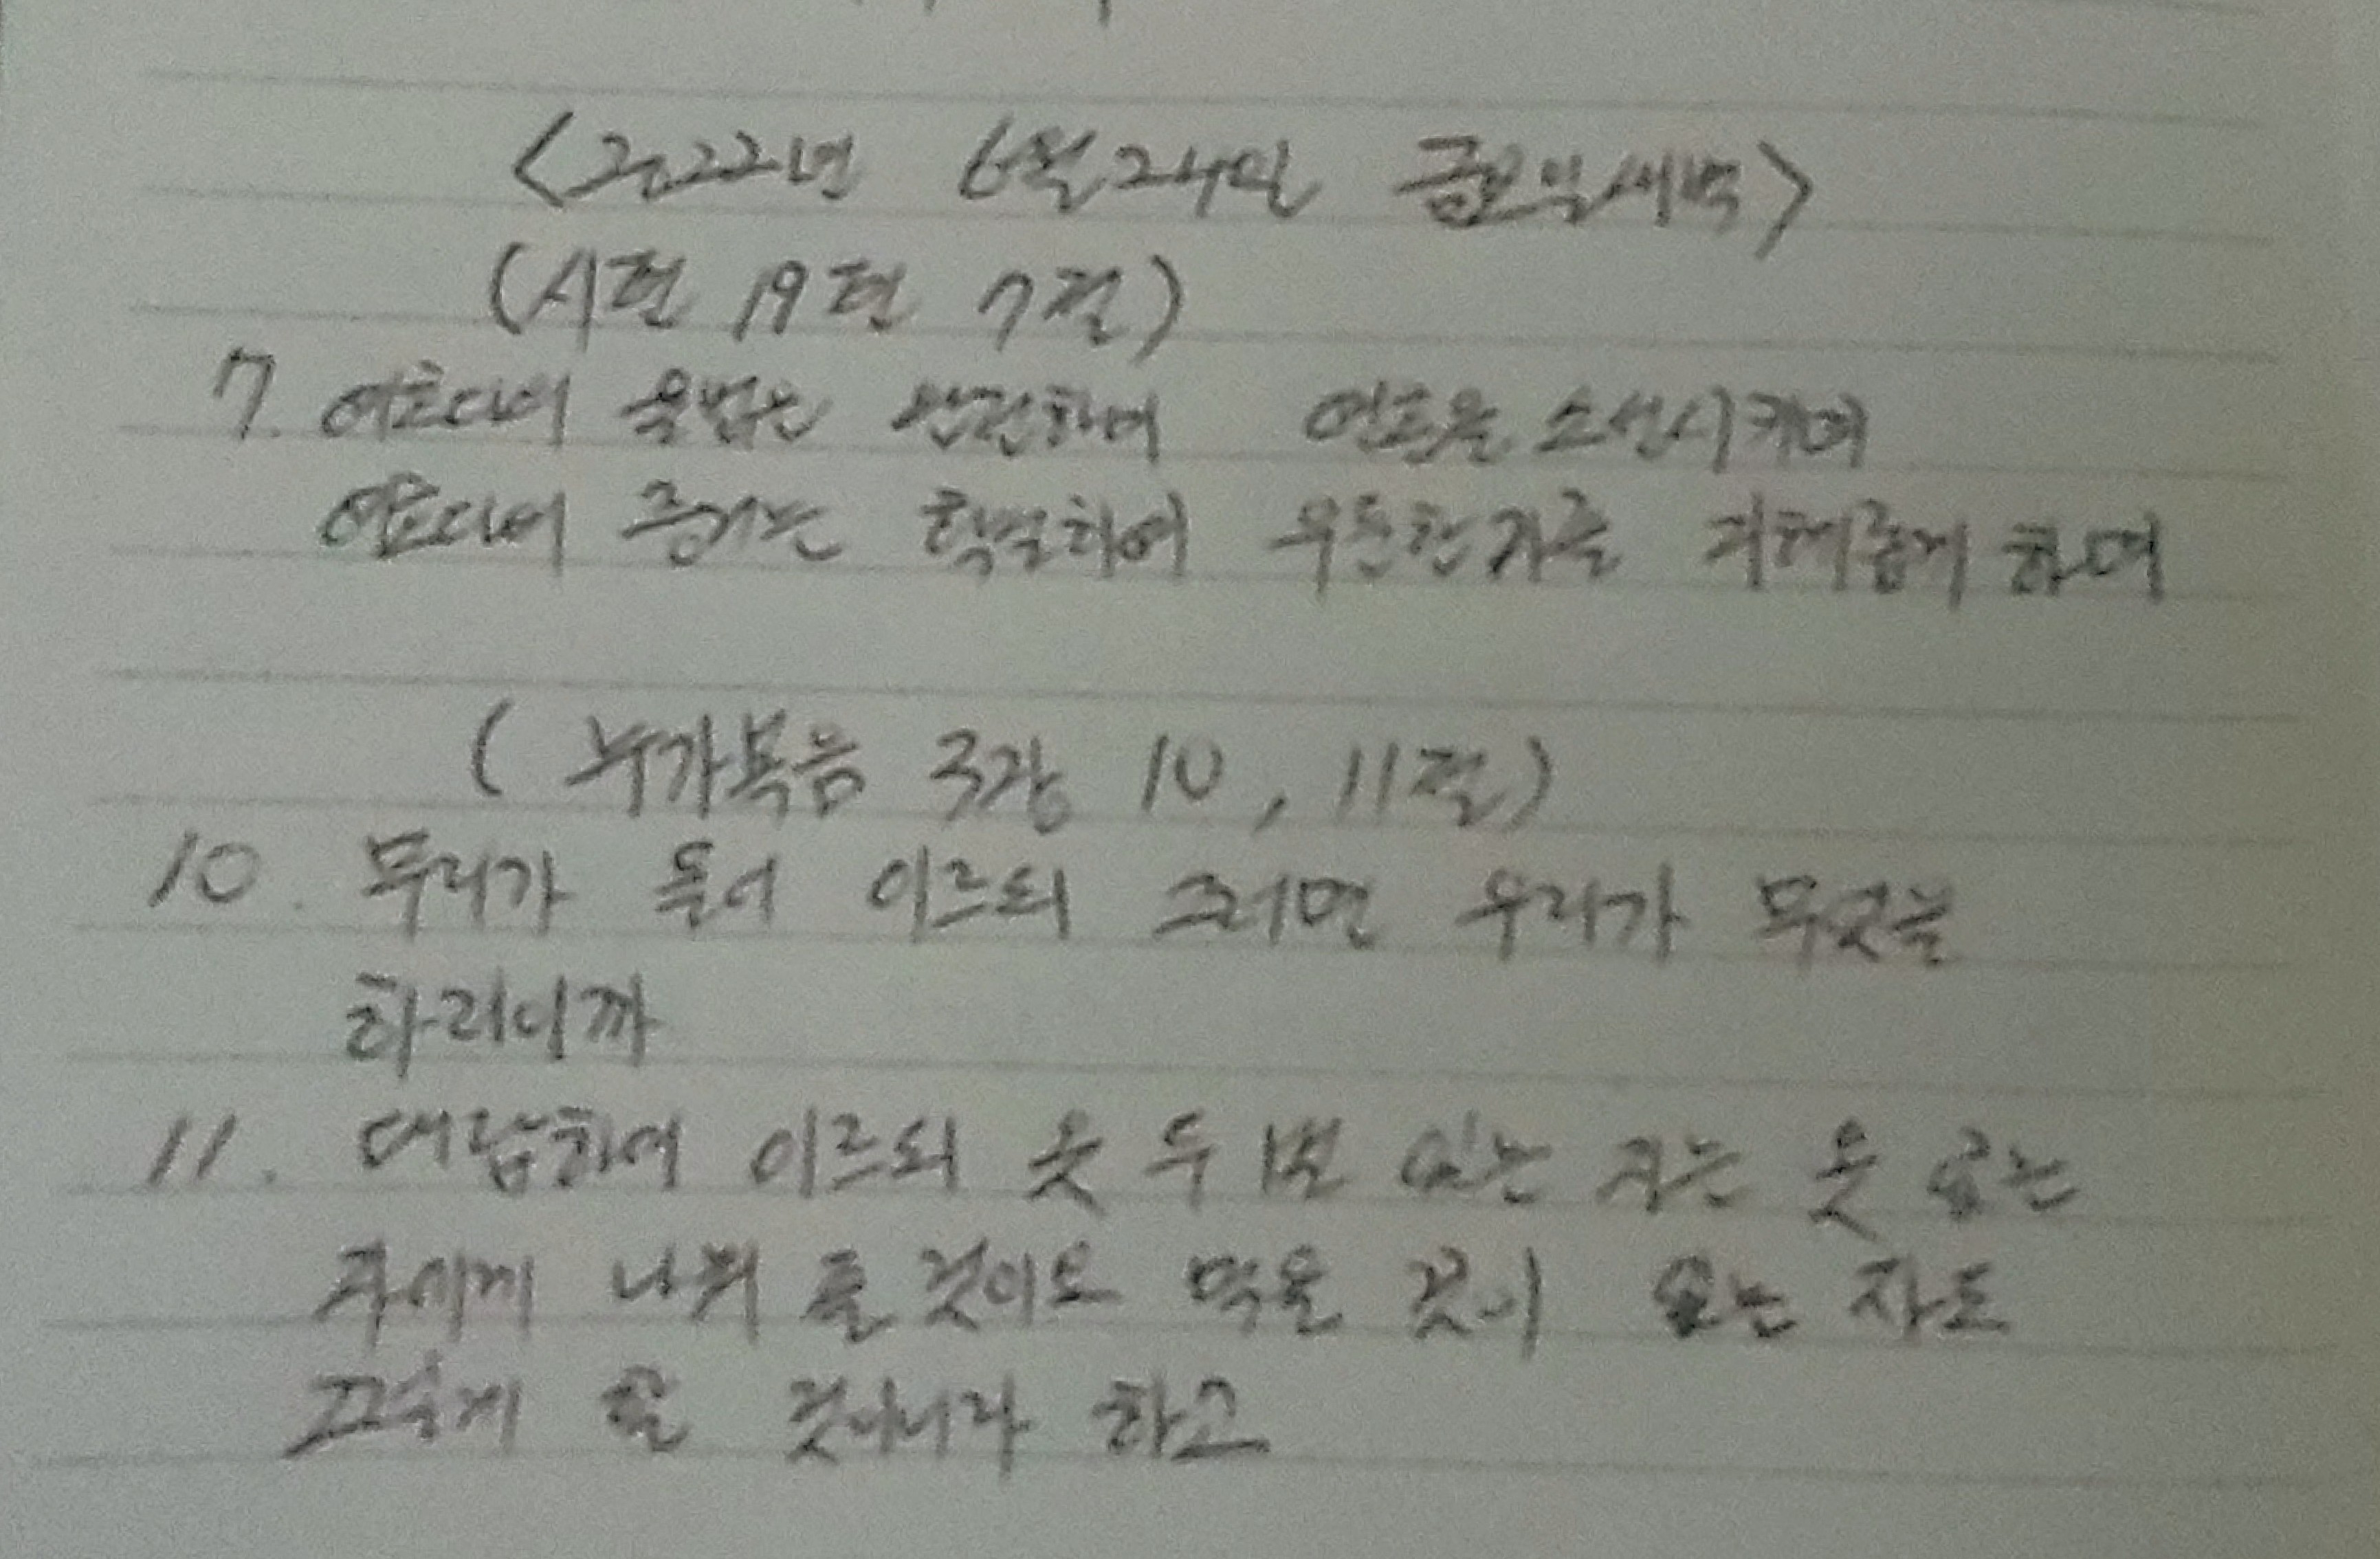 <2022년 6월 24일 금요일새벽>
(시편 19편 7절)
7. 여호와의 율법은 완전하여 영혼을 소성시키며
여호와의 증거는 확실하여 우둔한자를 지혜롭게 하며
(누가복음 3장 10, 11절)
10. 무리가 물어 이르되 그러면 우리가 무엇을
하리이까
11. 대답하여 이르되 옷 두 벌 있는 자는 옷 없는
자에게 나눠 줄 것이요 먹을 것이 있는 자도
그렇게 할 것이니라 하고